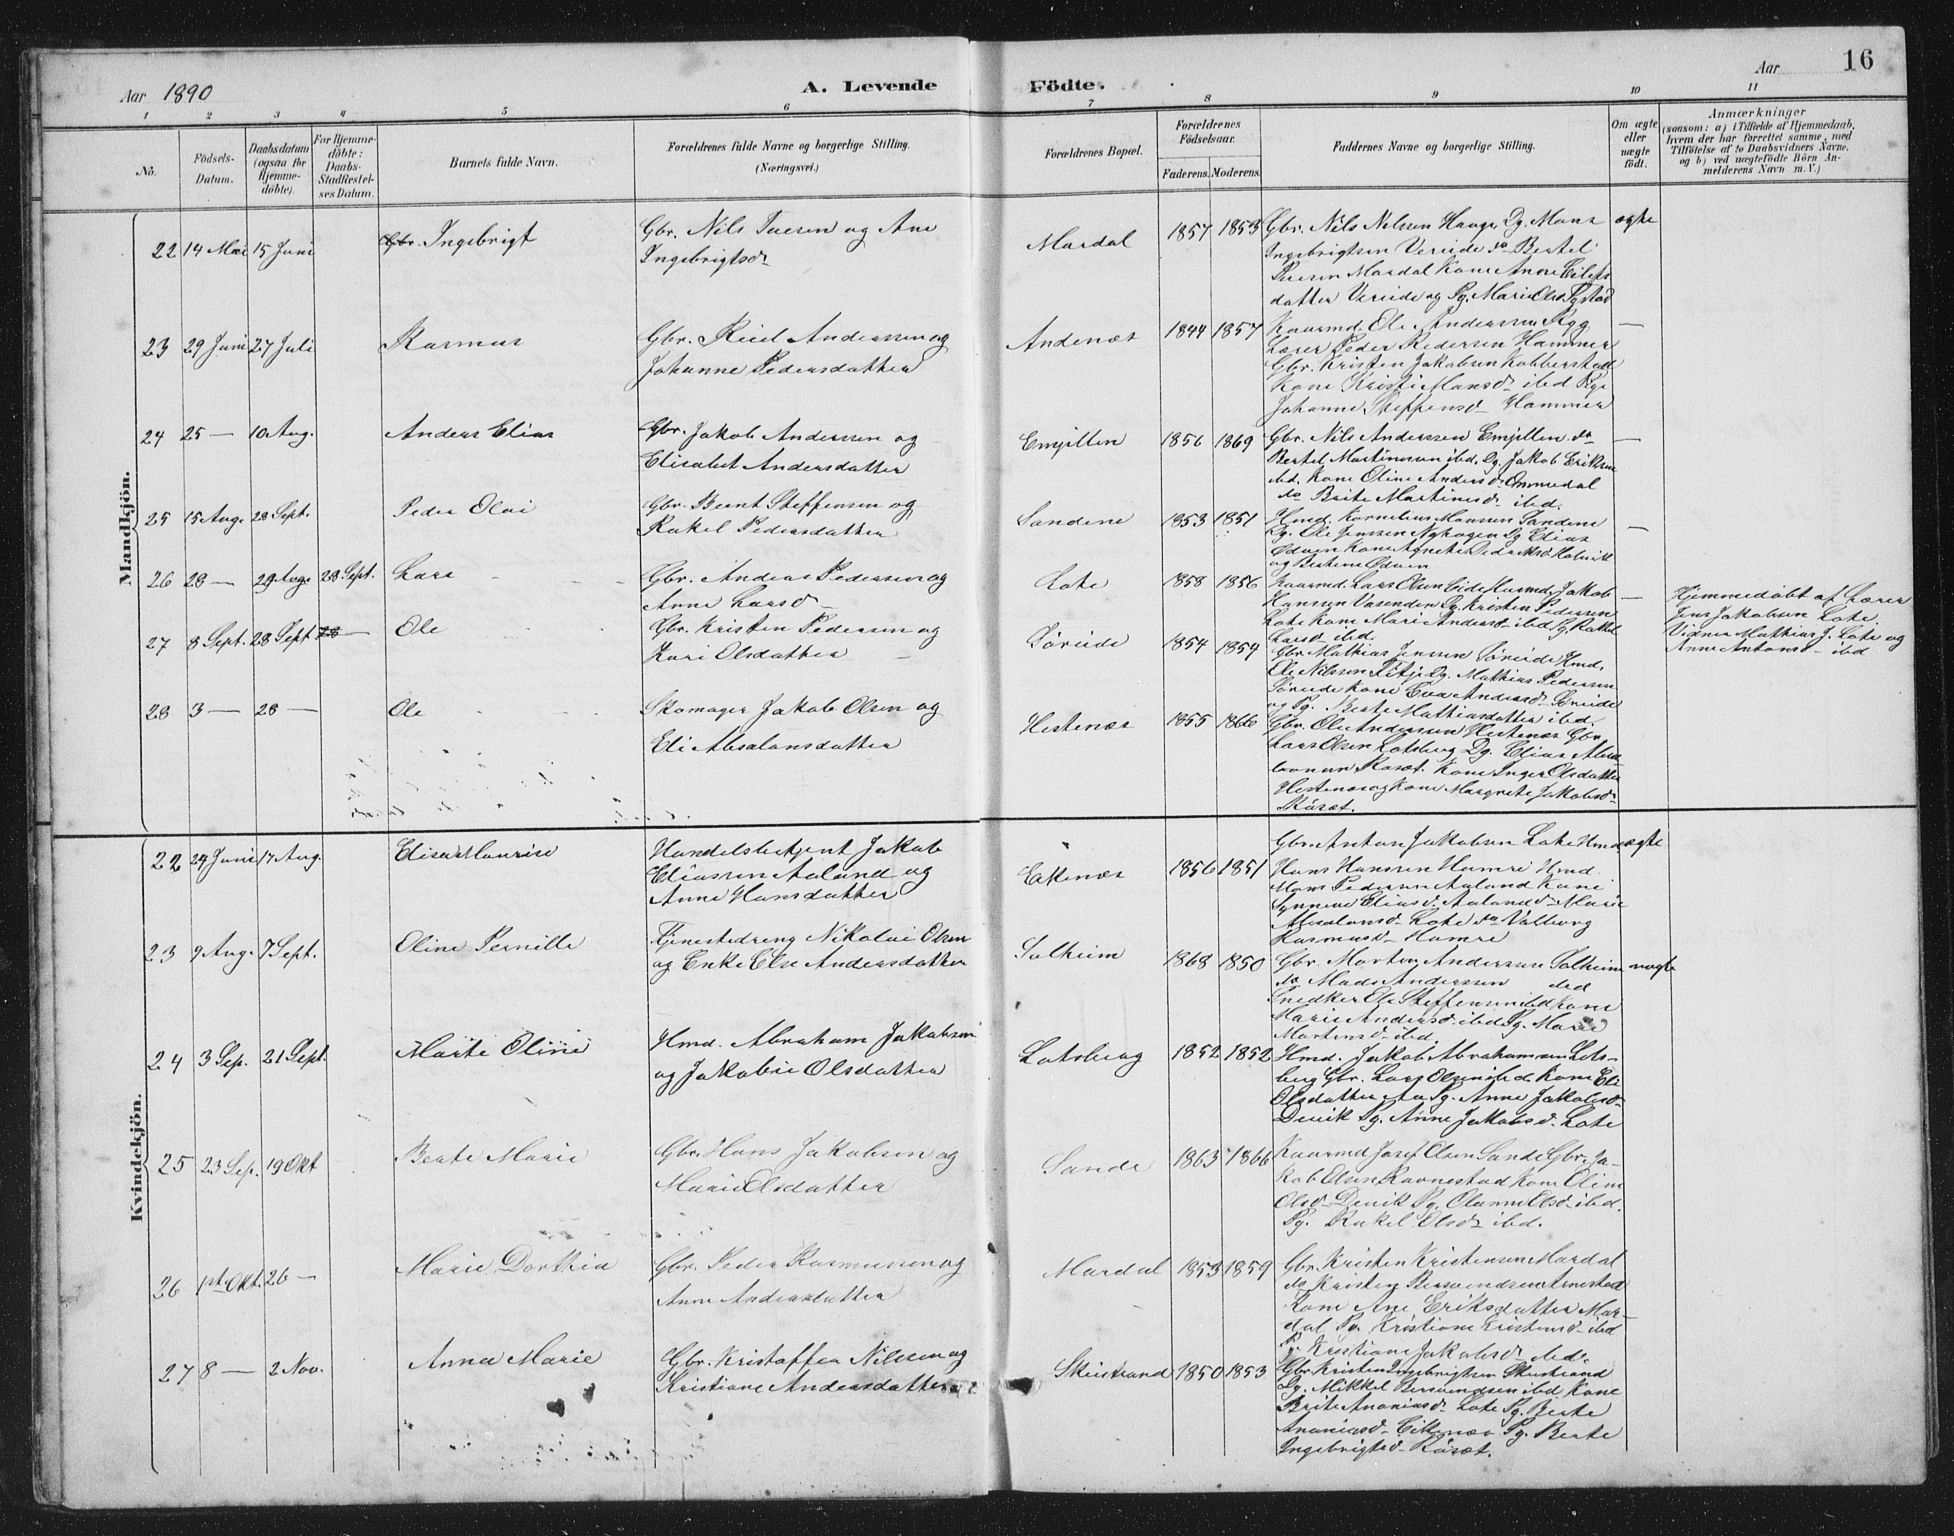 16
Aar 1890
A. Levende
Födte.
Aar
1 2 3 4 5 6 7 8 9 10 11
No.
Födsels-Datum.
Daabsdatum (ogsaa for Hjemme-döbte).
For Hjemme-döbte: Daabs-Stadfæstel-ses Datum.
Barnets fulde Navn.
Forældrenes fulde Navne og borgerlige Stilling.
(Næringsvei.)
Forældrenes Bopæl.
Forældrenes Födselsaar.
Faderens. Moderens.
Faddernes Navne og borgerlige Stilling.
Om ægte eller uægte födt.
Anmærkninger
(saasom: a) i Tilfælde af Hjemmedaab,
hvem der har forrettet samme, med
Tilföielse af to Daabsvidners Navne.
og b) ved uægtefödte Börn An-
melderens Navn m. V.)
Mandkjön.
22 14 Mai 15 Juni Ingebrigt
Gbr. Nils Tuesen og Ane
Ingebrigtsd
Mardal 1857 1853
Gbr. Nils Nilsen Hauge Dg. Mons
Ingebrigtsen Vereide do Bertel
Mardal Kone Anne Eilerts
datter Vereide og Pg. Marie Olsd
ægte
23 29 Juni 27 Juli Rasmus
Gbr. Reiel Anderssen og
Johanne Pedersdatter
Andenæs 1844 1857
Kaarmd. Ole Anderssen Rygg
Lærer Peder Pedersen Hammer
Gbr. Kristen Jakobsen Kobberstad
Kone Kristi Monsd ibd Pige
Johanne Steffensd Hammer
—
24 25 — 10 Aug. Anders Elias
Gbr. Jakob Anderssen og
Elisabet Andersdatter
Emjellen 1856 1869
Gbr. Nils Anderssen Emjellen do
Bertel Martinusen ibd. Dg. Jakob Eriksen
ibd. Kone Oline Andersd Ommedal
do Berte Martinesd ibd.
—
25 15 Aug. 28 Sept. Peder Olai
Gbr. Bernt Steffensen og
Rakel Pedersdatter
Sandene 1853 1851
Hmd. Kornelius Monsen Sandene
Dg. Ole Jenssen Nyhagen Dg Elias
Ødven Kone Agnete Pedersd Holvik
og Bertine Ødven
—
26 28 — 29 Aug. 28 Sept. Lars
Gbr. Andreas Pedersen og
Anne Larsd
Lote 1858 1856
Kaarmd. Lars Olsen Eide Kaarmd. Jakob
Hansen Vasenden Dg. Kristen Pedersen
Lote Kone Marie Andersd ibd Pg. Rakkel
Larsd ibd.
—
Hjemmedöbt af Lærer
Jens Jakobsen Lote.
Vidner Mathias J. Lote og
Anne Antonsd ibd
27 8 Sept. 28 Sept 28 — Ole
Gbr. Kristen Pedersen og
Kari Olsdatter
Søreide 1854 1854
Gbr. Mathias Jenssen Søreide Hmd.
Ole Nilssen Fitje Dg. Mathias Pedersen
Søreide Kone Eva Andersd Søreide
og Pg. Berte Mathiasdatter ibd.
28 3 — 28 — Ole
Skomager Jakob Olsen og
Eli Absalonsdatter
Hestenæs 1855 1866
Gbr. Ole Anderssen Hestenæs Gbr.
Lars Olsen Lotsberg Dg. Elias Absa-
lonsen Røset. Kone Inger Olsdatter
Hestenes og Kone Margrete Jakobsd
Røset.
Kvindekjön.
22 24 Juni 17 Aug. Elise Maurise
Handelsbetjent Jakob
Eliassen Aaland og
Anne Hansdatter
Eikenæs 1856 1851
Gbr. Anton Jakobsen Lote Hmd.
Hans Hanssen Hamre Hmd.
Mons Pedersen Aaland Kone
Synneve Eliasd. Aaland Marie
Absalonsd Lote do Valborg
Rasmusd Hamre
ægte
23 9 Aug. 7 Sept. Oline Pernille
Tjenestedreng Nikolai Olsen
og Enke Else Andersdatter
Solheim 1868 1850
Gbr. Morten Anderssen Solheim
do Mads Anderssen ibd
Snedker Ole Steffensen ibd Kone
Marie Andersd ibd Pg. Marie
Mortensd ibd.
uægte
24 3 Sep. 21 Sept. Marte Oline
Hmd. Abraham Jakobsen
og Jakobie Olsdatter
Lotsberg 1852 1852
Hmd. Jakob Abrahamsen Lots-
berg Gbr. Lars Olsen ibd. Kone Eli
Olsdatter Aa Pg. Anne Jakobsd
Devik Pg. Anne Jakobsd. Lote
25 23 Sep. 19 Okt Berte Marie
Gbr. Hans Jakobsen og
Marie Olsdatter
Sande 1863 1866
Kaarmd Josef Olsen Sande Gbr. Ja-
kob Olsen Ravnestad Kone Oline
Olsd Devik Pg. Olsd ibd.
Pg. Rakel Olsd ibd.
26 1st Okt. 26 — Marie Dorthea
Gbr. Peder Rasmussen og
Anne Andersdatter
Mardal 1853 1859
Gbr. Kristen Kristensen Mardal
do Kristen Bersvendsen Arnestad
Kone Ane Eriksdatter Mar-
dal Pg. Kristiane Kristensd ibd
Pg. Kristiane Jakobsd ibd.
27 8 — 2 Nov. Anna Marie
Gbr. Kristoffer Nilssen og
Kristiane Andersdatter
Skeistrand 1850 1853
Gbr. Kristen Ingebrigtsen Skeistrand
Dg. Mikkel Bersvendsen ibd Kone
Brite Ananiasd Lote Pg. Berte
Ananiasd Eikenæs Pg. Berte
Ingebrigtsd Røset.